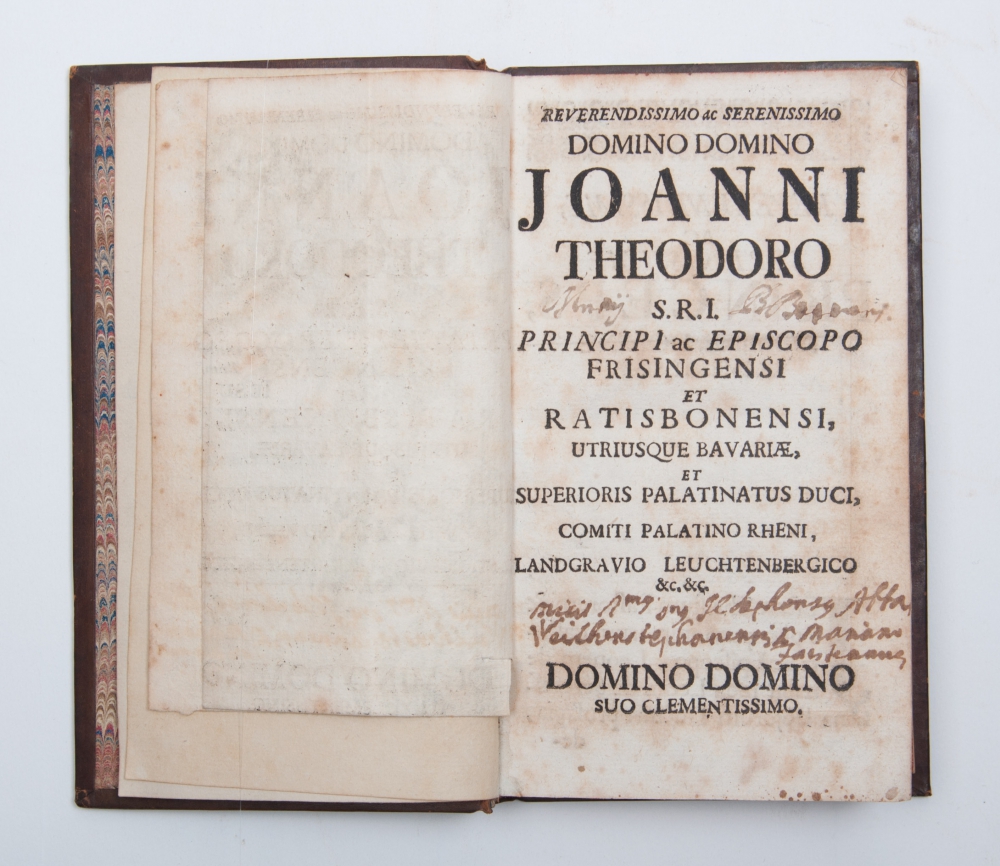 REVERENDISSIMO ac SERENISSIMO
DOMINO DOMINO
JOANNI
THEODORO
S.R.I.
PRINCIPI ac EPISCOPO
FRISINGENSI
ET
RATISBONENSI,
UTRIUSQUE BAVARIÆ,
ET
SUPERIORIS PALATINATUS DUCI,
COMITI PALATINO RHENI,
LANDGRAVIO LEUCHTENBERGICO
&c. &c.
Ildephonsg Abba
Weihenstephanensis Mariano
DOMINO DOMINO
SUO CLEMENTISSIMO.